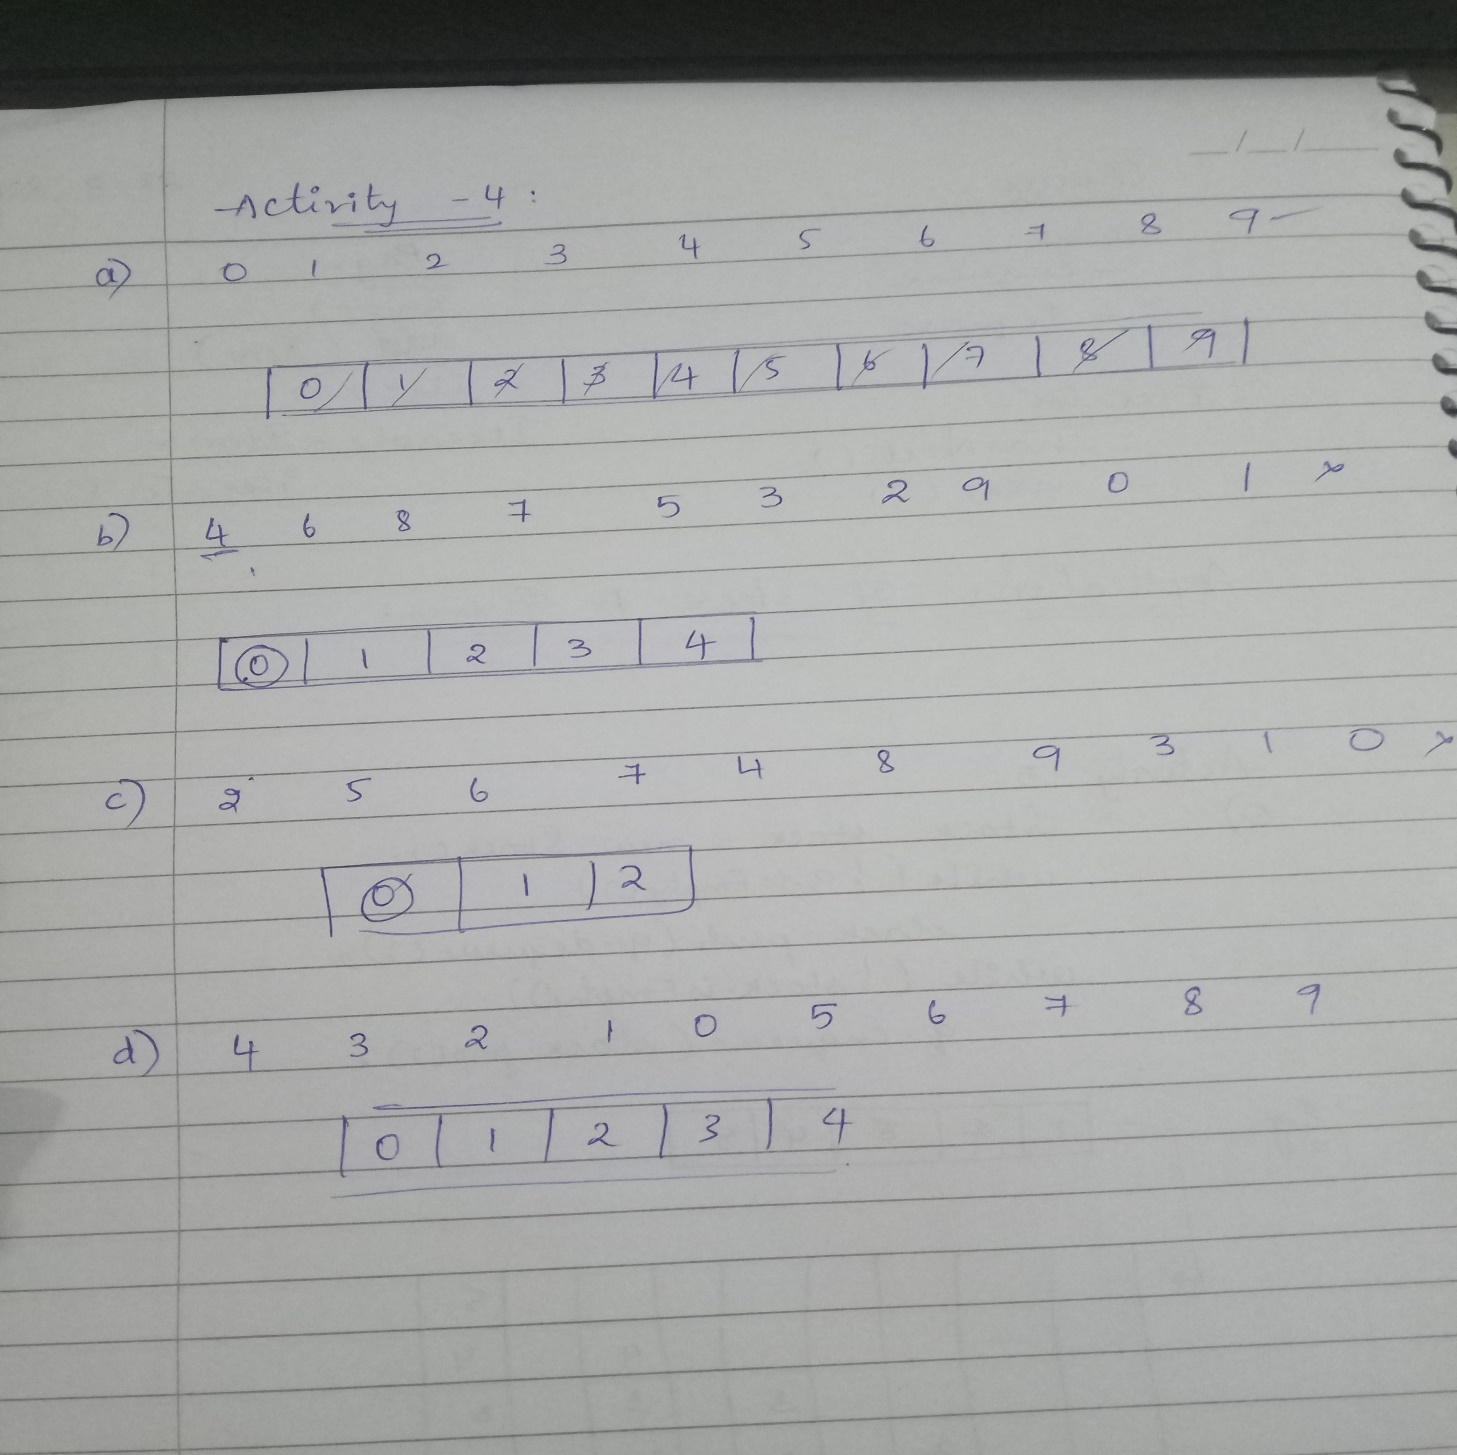 Activity - 4 :
a) 0 1 2 3 4 5 6 7 8 9 -
0 1 2 3 4 5 6 7 8 9
b) 4 6 8 7 5 3 2 9 0 1 x
0 1 2 3 4
c) 2 5 6 7 4 8 9 3 1 0 x
0 1 2
d) 4 3 2 1 0 5 6 7 8 9
0 1 2 3 4